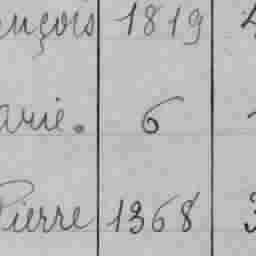 ançois 1819 4
arie. 6
Pierre 1368 3